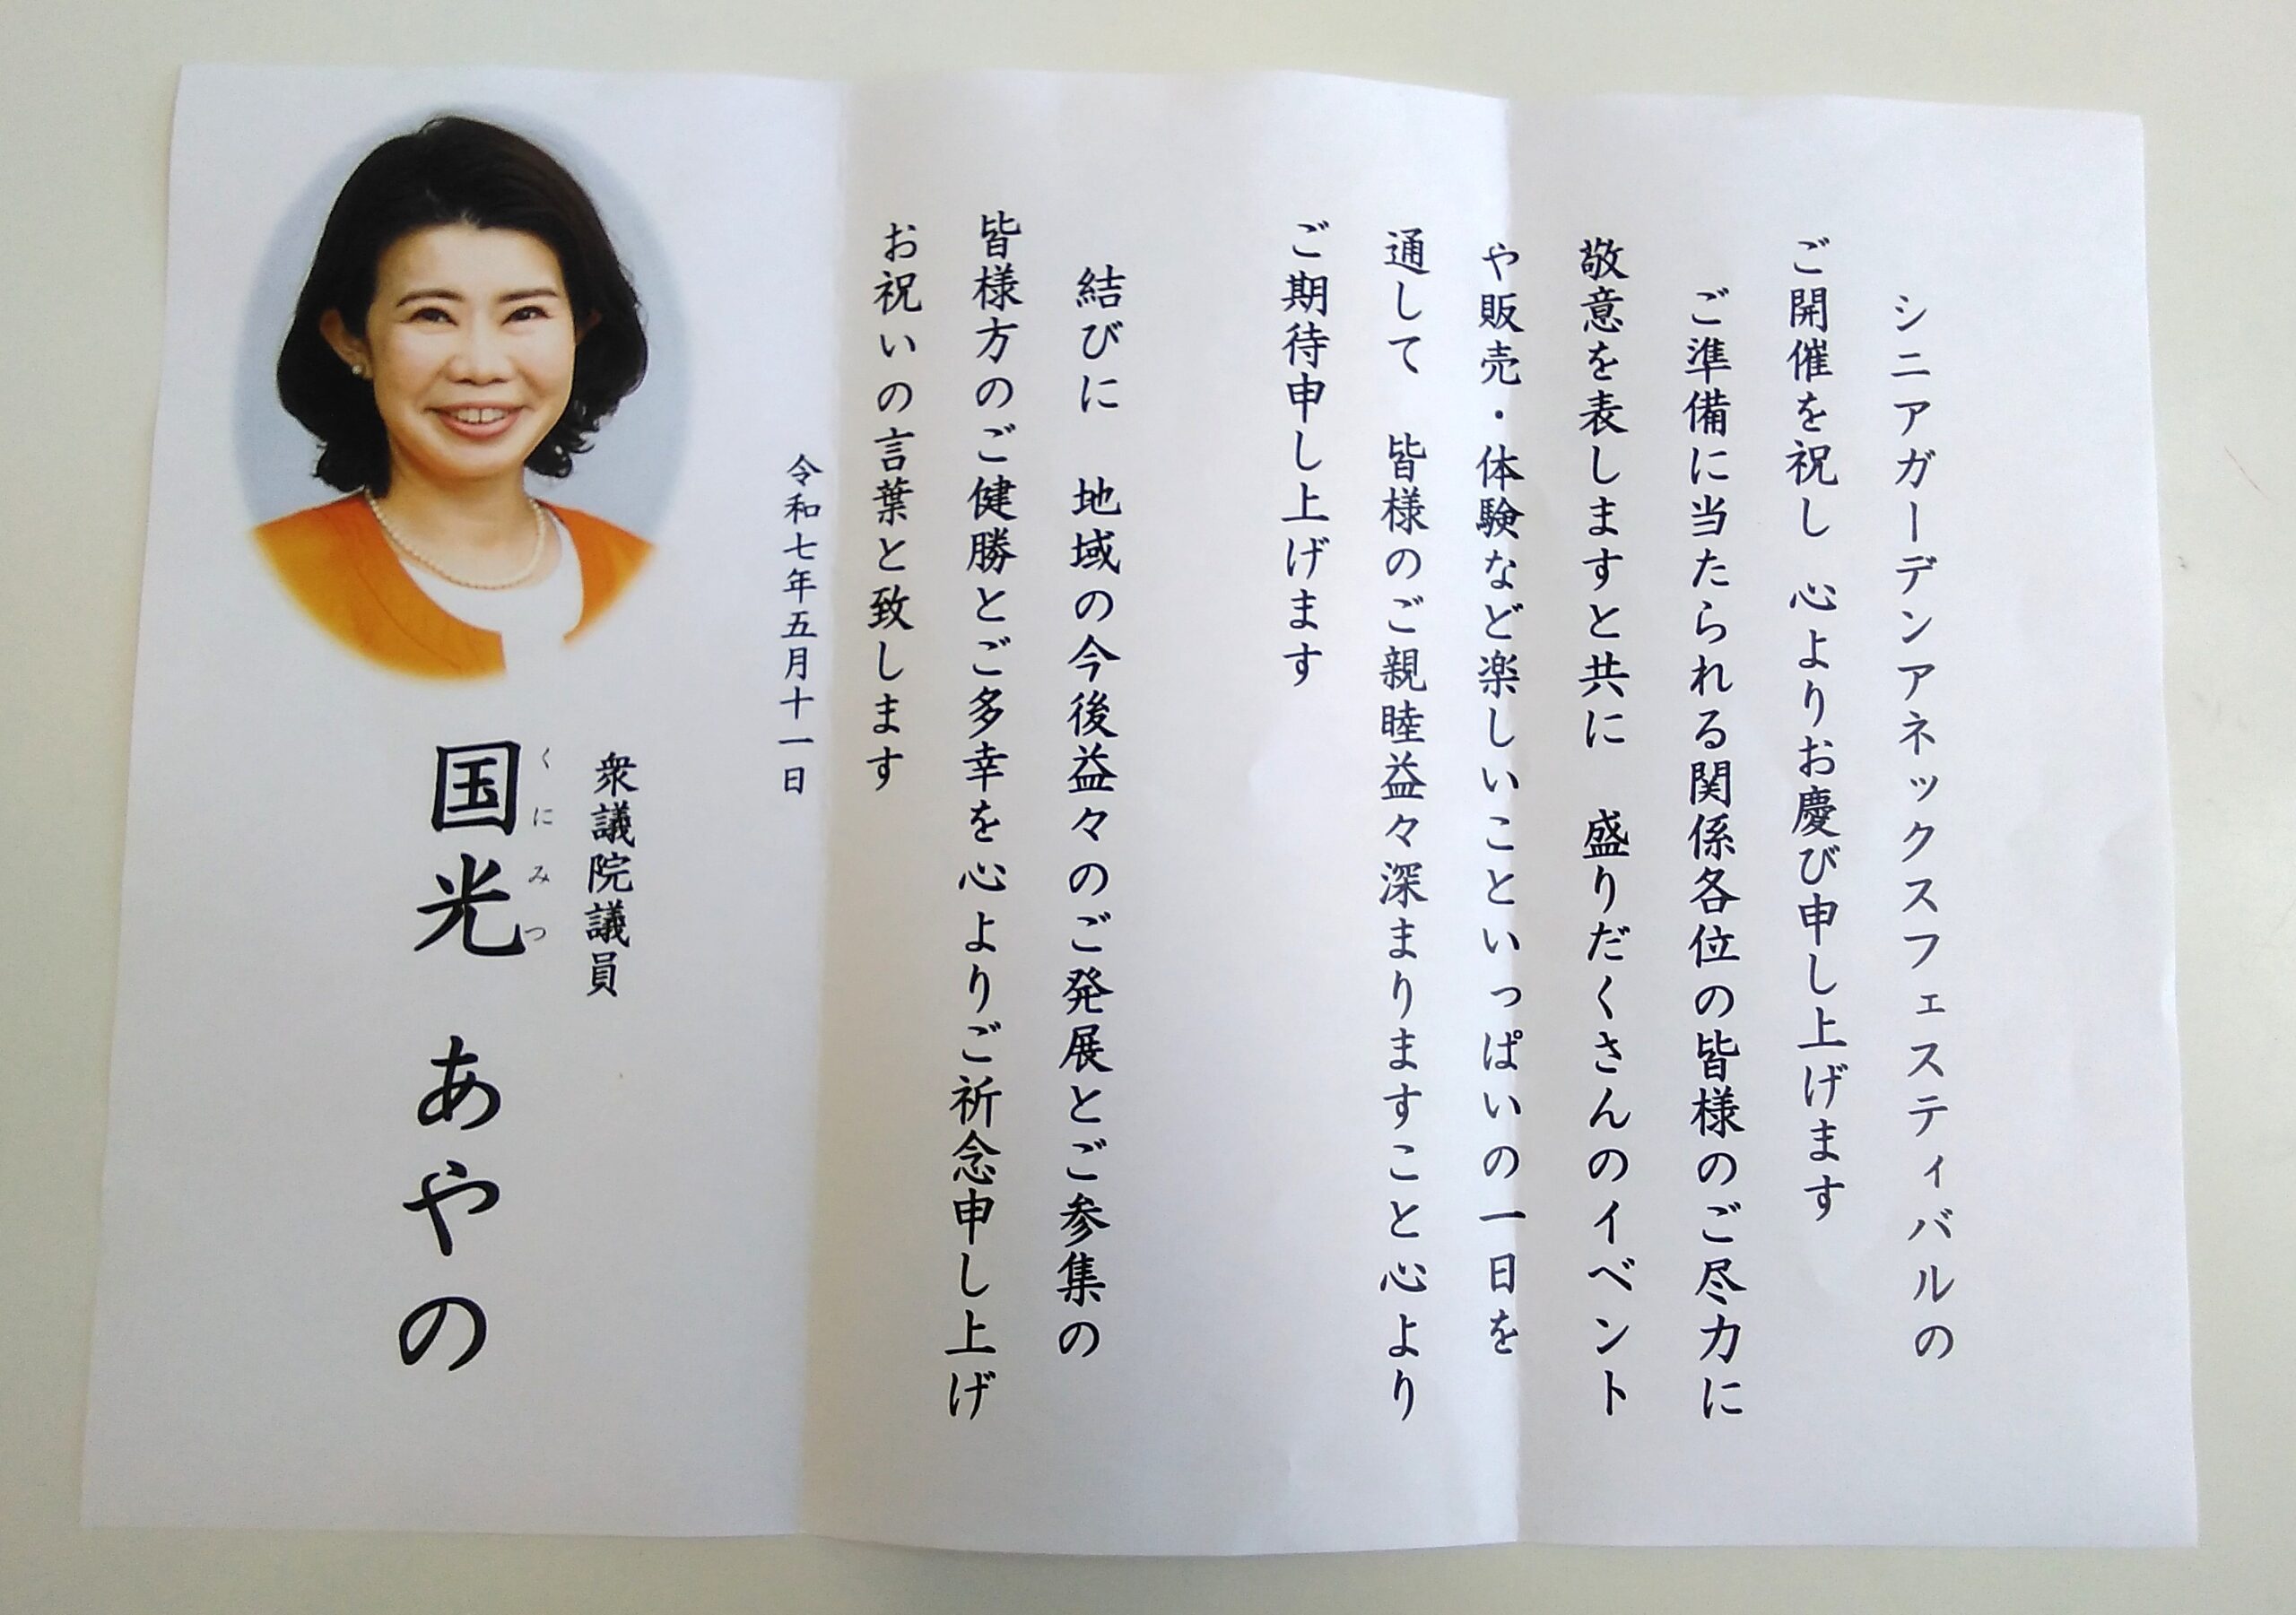 シニアガーデンアネックスフェスティバルの
ご開催を祝し　心よりお慶び申し上げます
ご準備に当たられる関係各位の皆様のご尽力に
敬意を表しますと共に　盛りだくさんのイベント
や販売・体験など楽しいこといっぱいの一日を
通して　皆様のご親睦益々深まりますこと心より
ご期待申し上げます
結びに　地域の今後益々のご発展とご参集の
皆様方のご健勝とご多幸を心よりご祈念申し上げ
お祝いの言葉と致します
令和七年五月十一日
衆議院議員
くにみつ
国光　あやの